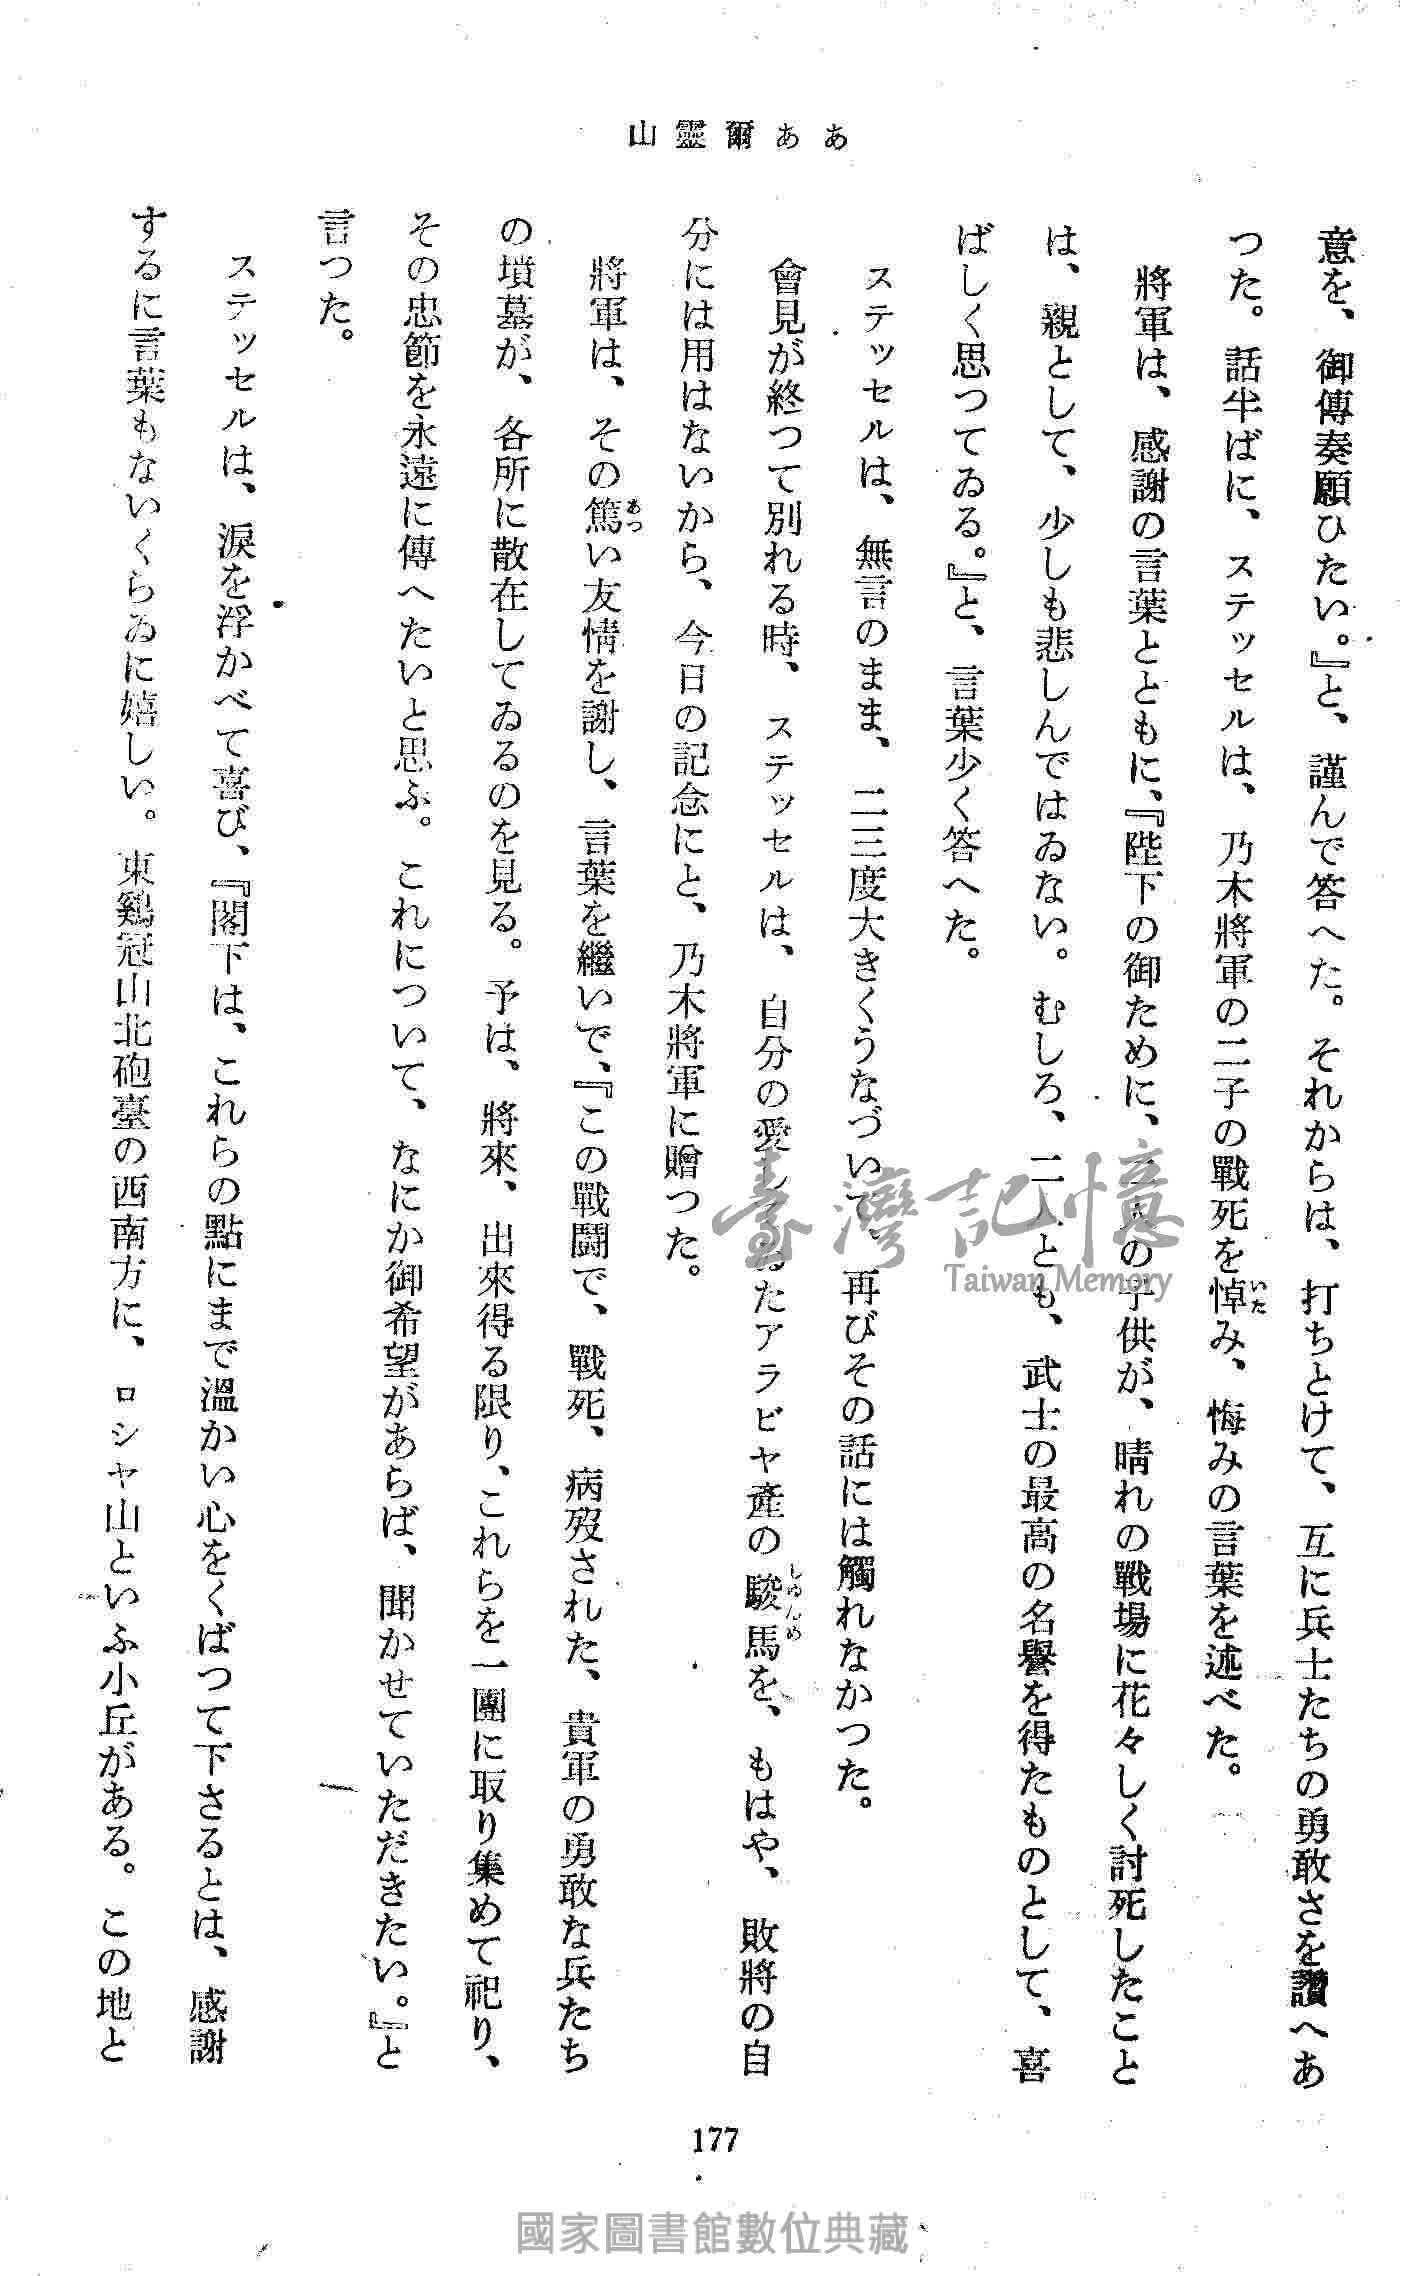 ああ爾靈山
意を、御傳奏願ひたい。』と、謹んで答へた。それからは、打ちとけて、互に兵士たちの勇敢さを讚へあ
つた。話半ばに、ステッセルは、乃木將軍の二子の戰死を悼み、悔みの言葉を述べた。
いた
將軍は、感謝の言葉とともに、『陛下の御ために、二人の子供が、晴れの戰場に花々しく討死したこと
は、親として、少しも悲しんではゐない。むしろ、二人とも、武士の最高の名譽を得たものとして、喜
ばしく思つてゐる。』と、言葉少く答へた。
ステッセルは、無言のまま、二三度大きくうなづいて、再びその話には觸れなかつた。
會見が終つて別れる時、ステッセルは、自分の愛してゐたアラビヤ產の駿馬を、もはや、敗將の自
しゆんめ
分には用はないから、今日の記念にと、乃木將軍に贈つた。
將軍は、その篤い友情を謝し、言葉を繼いで、『この戰鬪で、戰死、病歿された、貴軍の勇敢な兵たち
あつ
の墳墓が、各所に散在してゐるのを見る。予は、將來、出來得る限り、これらを一團に取り集めて祀り、
その忠節を永遠に傳へたいと思ふ。これについて、なにか御希望があらば、聞かせていただきたい。』と
言つた。
ステッセルは、淚を浮かべて喜び、『閣下は、これらの點にまで溫かい心をくばつて下さるとは、感謝
するに言葉もないくらゐに嬉しい。東鷄冠山北砲臺の西南方に、ロシヤ山といふ小丘がある。この地と
177
臺灣記憶
Taiwan Memory
國家圖書館數位典藏